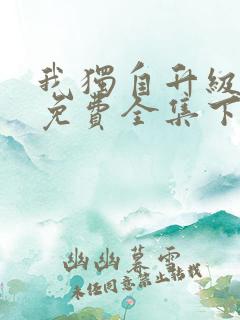 我獨自升級
免費全集下
幽幽暮雲
未经同意禁止转载